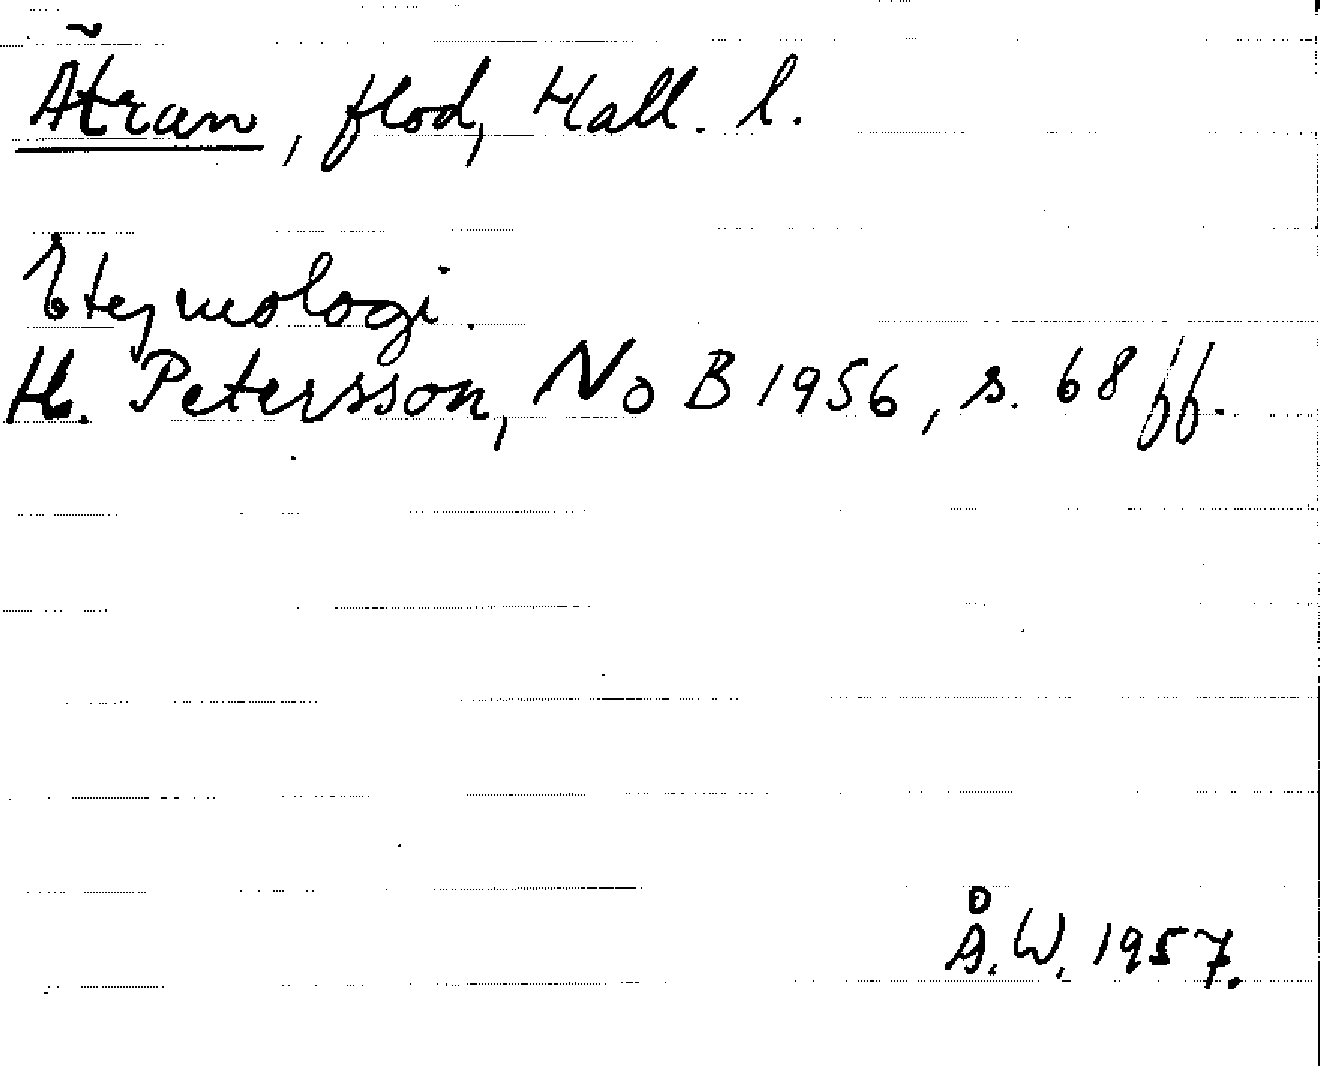 Ätran, flod, Hall. l.
Etymologi.
H. Petersson, NoB 1956, s. 68 ff.
Å.W. 1957.